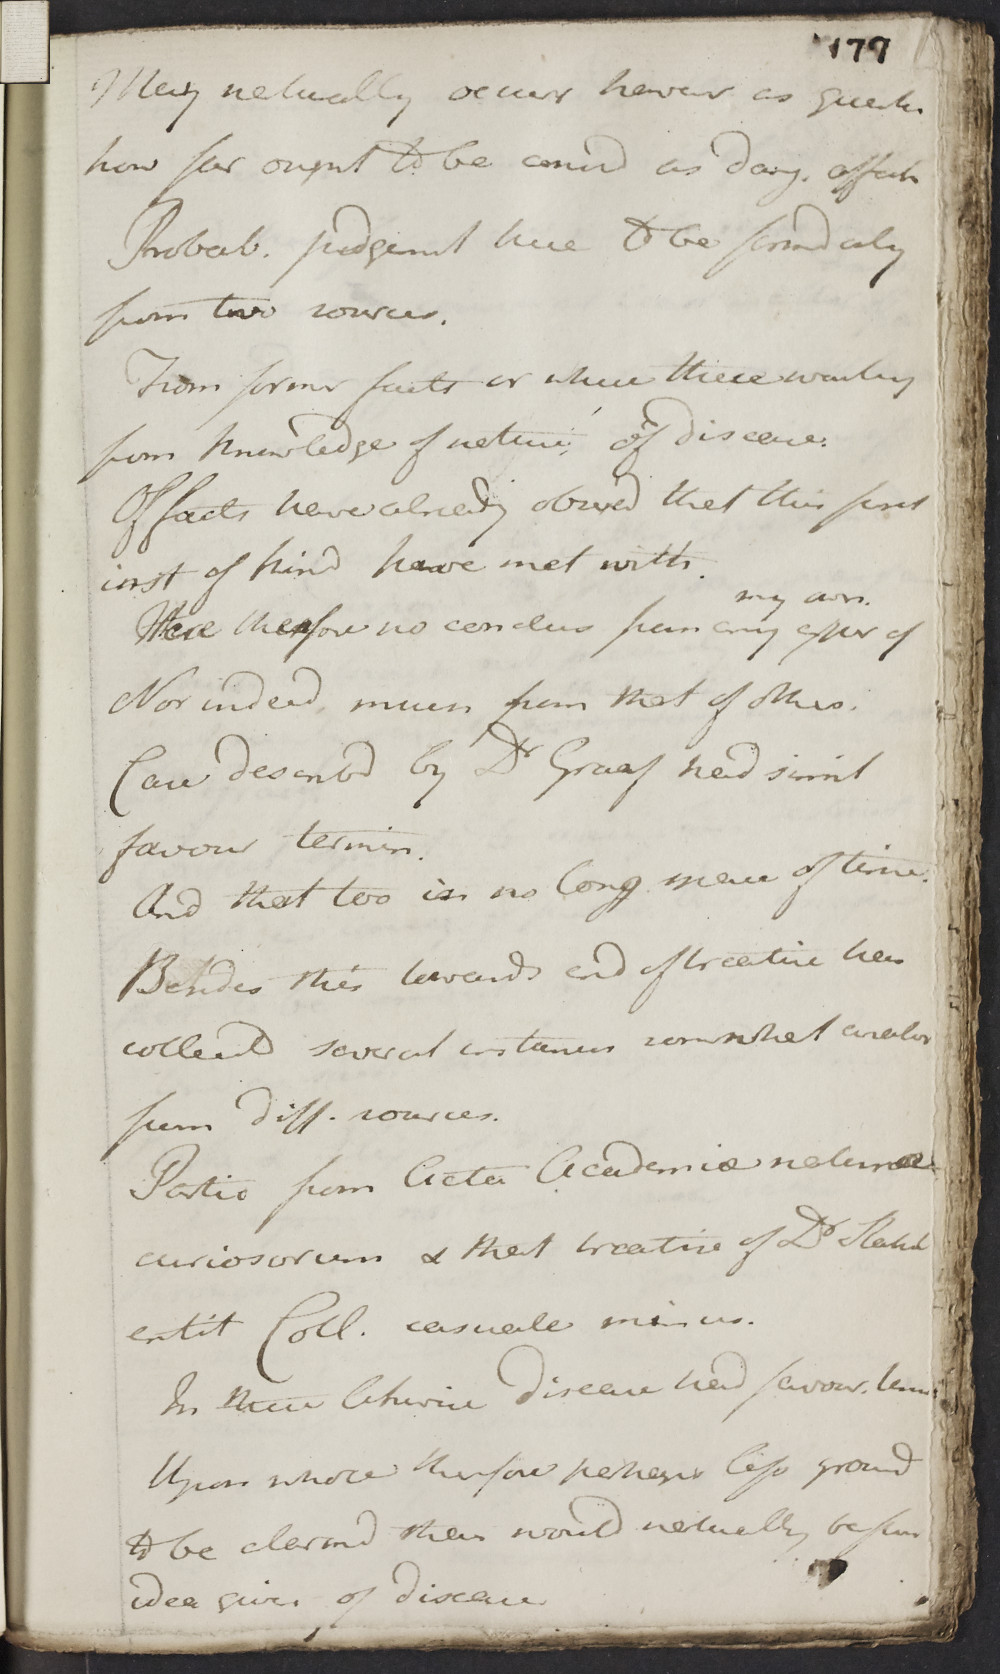 177
May naturally occurr however as quest.
how far ought to be consid as dang. affect
Probab. judgment here to be formd only
from two sources.
From former facts or where these wanting
from knowledge of nature of disease.
Of facts have already observd that this first
inst of kind have met with.
Here therefore no conclus from any exper of my own.
Nor indeed much from that of others.
Case describd by Dr Graaf had simil
favour termin.
And that too in no long space of time.
Besides this towards end of treatise has
collectd several instances somewhat analog
from diff. sources.
Partic from Acta Academiæ naturæ
curiosorum & that treatise of Dr Stahl
entit Coll. casuale minus.
In these likewise disease had favour. term
Upon whole therefore perhaps less ground
to be alarmd than would naturally be from
idea given of disease